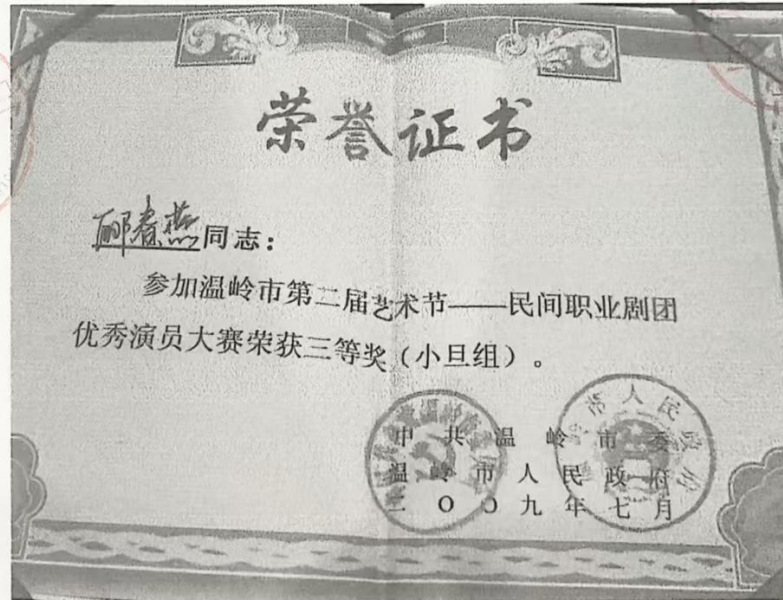 荣誉证书
郦春燕同志：
参加温岭市第二届艺术节——民间职业剧团
优秀演员大赛荣获三等奖（小旦组）。
中共温岭市委
温岭市人民政府
二〇〇九年七月